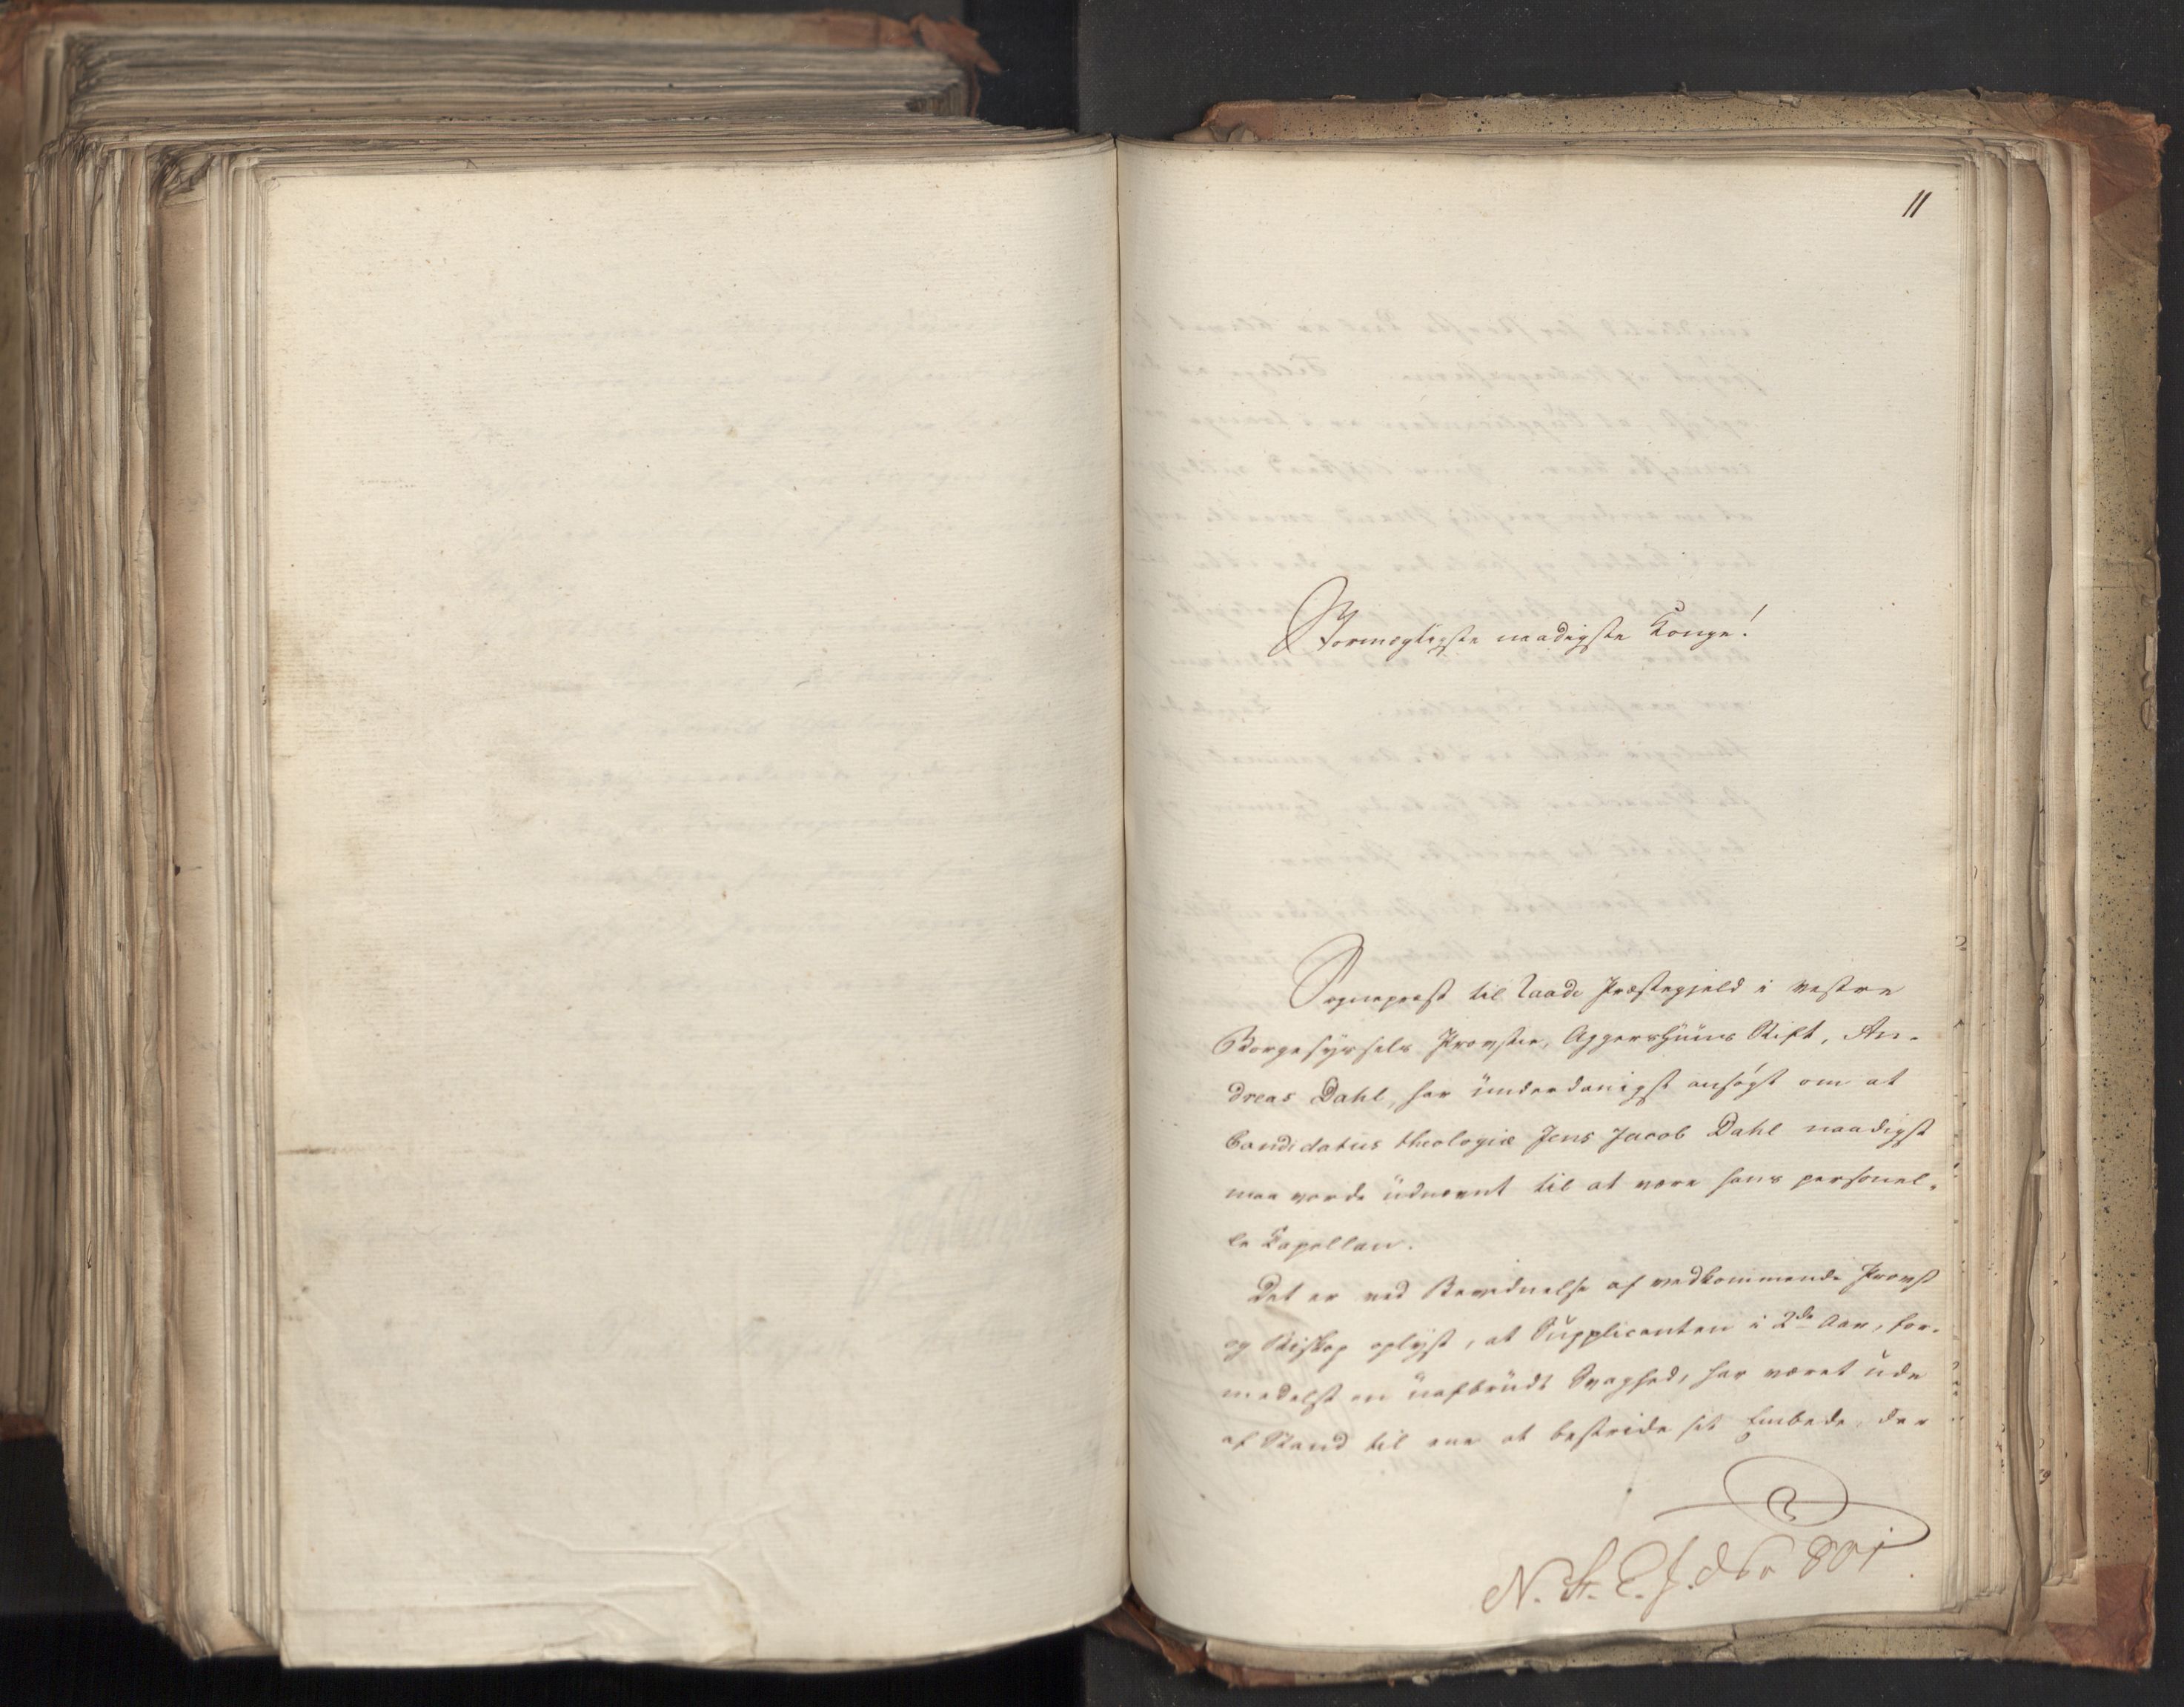 11
Stormægtigste naadigste Konge!
Sognepræst til Raade Præstegjeld i vestre
Borgesyssels Provstie, Aggershuus Stift, An-
dreas Dahl, har ünderdanigst ansøgt om at
Candidatus theologiæ Jens Jacob Dahl naadigst
maa vorde üdnævnt til at være hans personel-
le Kapellan.
Det er ved Bevidnelse af vedkommende Provst
og Biskop oplyst, at Supplicanten i 2de Aar, for-
medelst en üafbrüdt Svaghed, har været üde
af Stand til ene at bestride sit Embede, der